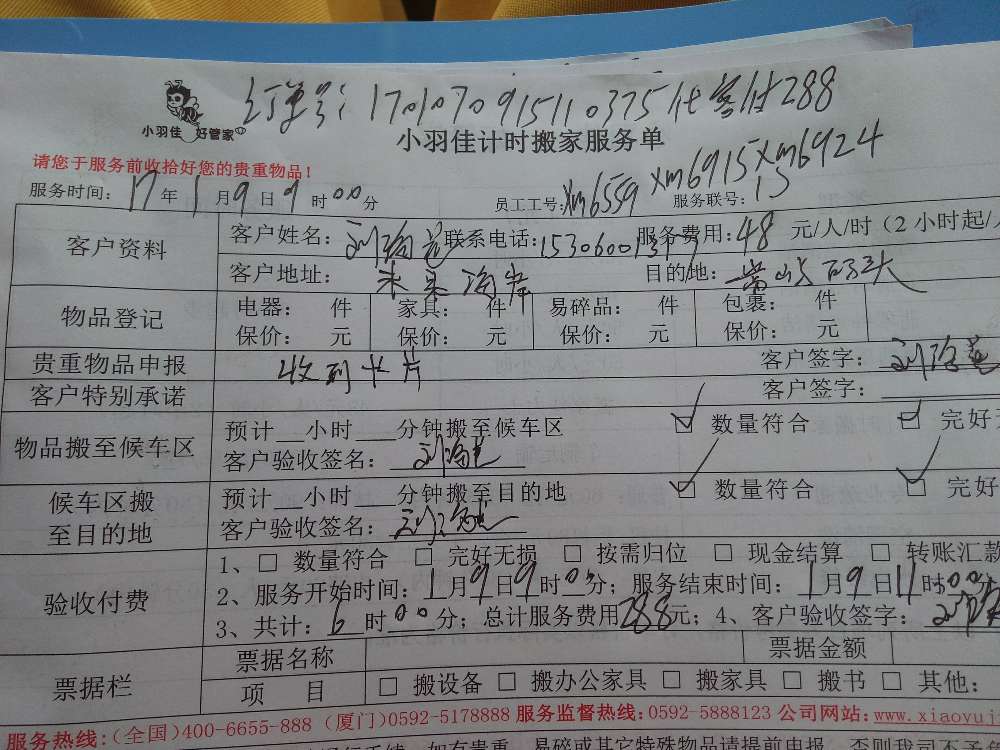 订单号:1701070915110375代客付288
小羽佳 好管家
小羽佳计时搬家服务单
请您于服务前收拾好您的贵重物品!
服务时间: 17 年 1 月 9 日 9 时 00 分 员工工号: xm6559 xm6915 xm6924 服务联号: 15
客户资料 客户姓名: 联系电话: 服务费用: 48 元/人/时(2小时起/
客户地址: 未来海岸 目的地: 码头
物品登记 电器: 件 家具: 件 易碎品: 件 包裹: 件
保价: 元 保价: 元 保价: 元 保价: 元
贵重物品申报 收到卡片 客户签字:
客户特别承诺 客户签字:
物品搬至候车区 预计__小时___分钟搬至候车区 ☑ 数量符合 ☑ 完好
客户验收签名:
候车区搬至目的地 预计__小时___分钟搬至目的地 ☑ 数量符合 ☑ 完好
客户验收签名:
验收付费 1、□ 数量符合 □ 完好无损 □ 按需归位 □ 现金结算 □ 转账汇款
2、服务开始时间: 1 月 9 日 9 时 00 分; 服务结束时间: 1 月 9 日 11 时 00 分
3、共计: 6 时 00 分; 总计服务费用 288 元; 4、客户验收签字:
票据栏 票据名称 票据金额
项 目 □ 搬设备 □ 搬办公家具 □ 搬家具 □ 搬书 □ 其他:
服务热线:(全国)400-6655-888 (厦门)0592-5178888 服务监督热线:0592-5888123 公司网站:www.xiaoyuj
如有贵重、易碎或其它特殊物品请提前申报,否则我司不予